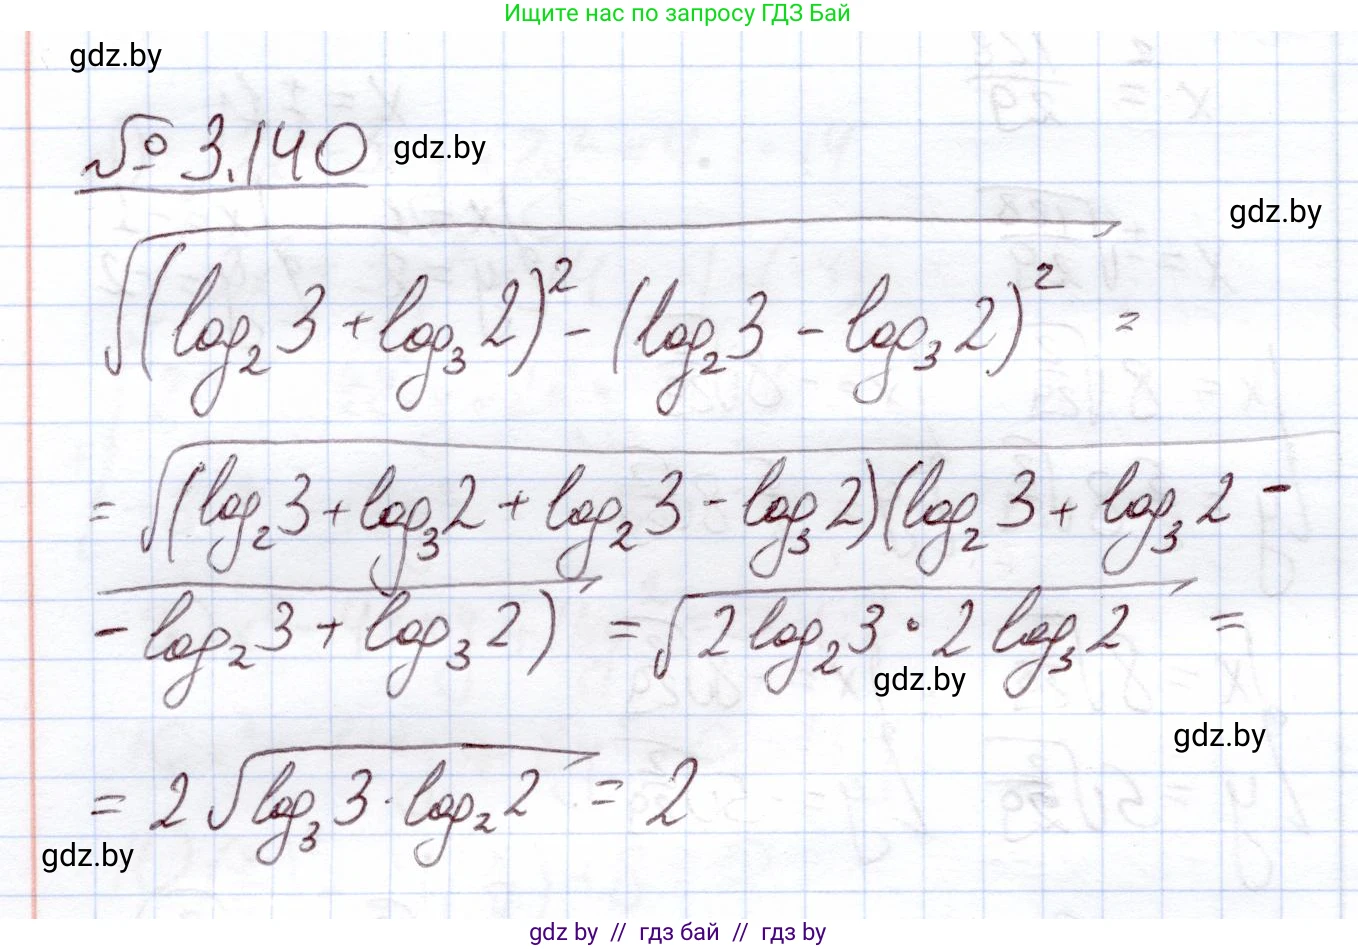 Ищите нас по запросу ГДЗ Бай
gdz.by
№ 3.140 gdz.by
gdz.by
√((log₂3 + log₃2)² - (log₂3 - log₃2)²) =
= √((log₂3 + log₃2 + log₂3 - log₃2)(log₂3 + log₃2 -
- log₂3 + log₃2) = √(2 log₂3 · 2 log₃2) =
gdz.by
gdz.by
= 2 √(log₃3 · log₂2) = 2
gdz.by
gdz by // гдз бай // gdz by